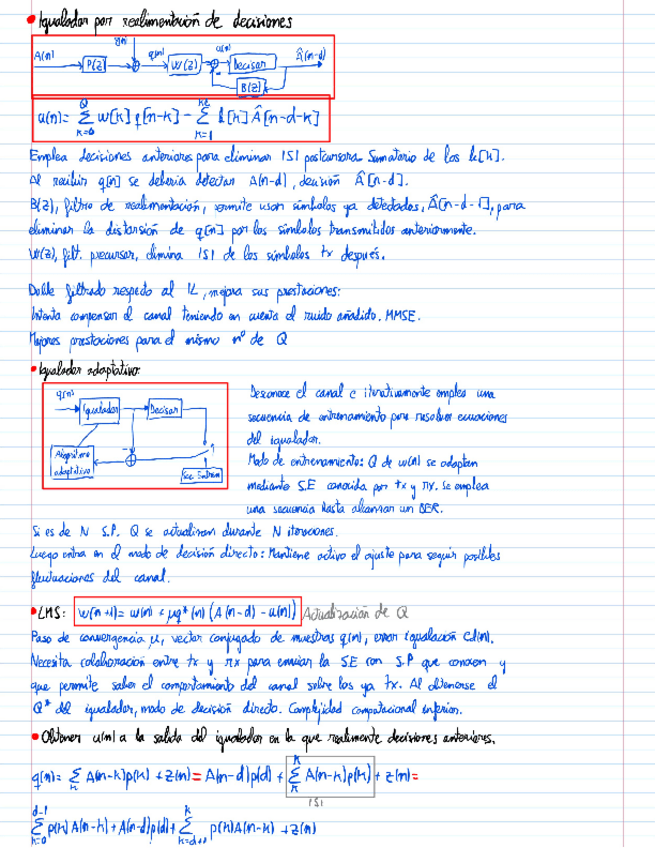 • Igualador por realimentación de decisiones
A[n] P(z) z[n] q[n] W(z) u[n] Decisor Â[n-d]
B(z)
u[n] = Σ_{k=0}^{Q} w[k] q[n-k] - Σ_{k=1} b[k] Â[n-d-k]
Emplea decisiones anteriores para eliminar ISI postcursora. Sumatorio de los b[k].
Al recibir q[n] se debería detectar A[n-d], decisión Â[n-d].
B(z), filtro de realimentación, permite usar símbolos ya detectados, Â[n-d-i], para
eliminar la distorsión de q[n] por los símbolos transmitidos anteriormente.
W(z), filt. precursor, elimina ISI de los símbolos tx después.
Doble filtrado respecto al IL, mejora sus prestaciones:
Intenta compensar el canal teniendo en cuenta el ruido añadido. MMSE.
Mejores prestaciones para el mismo nº de Q
• Igualador adaptativo:
q[n] Igualador Decisor
Algoritmo adaptativo
Sec. Entren
Desconoce el canal e iterativamente emplea una
secuencia de entrenamiento para resolver ecuaciones
del igualador.
Modo de entrenamiento: Q de w[n] se adaptan
mediante S.E conocida por tx y rx. Se emplea
una secuencia hasta alcanzar un BER.
Si es de N S.P. Q se actualizan durante N iteraciones.
Luego entra en el modo de decisión directo: Mantiene activo el ajuste para seguir posibles
fluctuaciones del canal.
• LMS: w[n+1] = w[n] + μq*[n] (A[n-d) - u[n]) Actualización de Q
Paso de convergencia μ, vector conjugado de muestras q[n], error igualación ed[n].
Necesita colaboración entre tx y rx para enviar la SE con S.P que conocen y
que permite saber el comportamiento del canal sobre los ya tx. Al obtenerse el
Q* del igualador, modo de decisión directo. Complejidad computacional inferior.
• Obtener u[n] a la salida del igualador en la que realimente decisiones anteriores.
q[n] = Σ_k A[n-k)p[k) + z[n] = A[n-d)p[d) + Σ_k^k A[n-k)p[k) + z[n] =
ISI
Σ_{k=0}^{d-1} p[k) A[n-k) + A[n-d)p[d) + Σ_{k=d+1}^{k} p[k)A[n-k) + z[n)